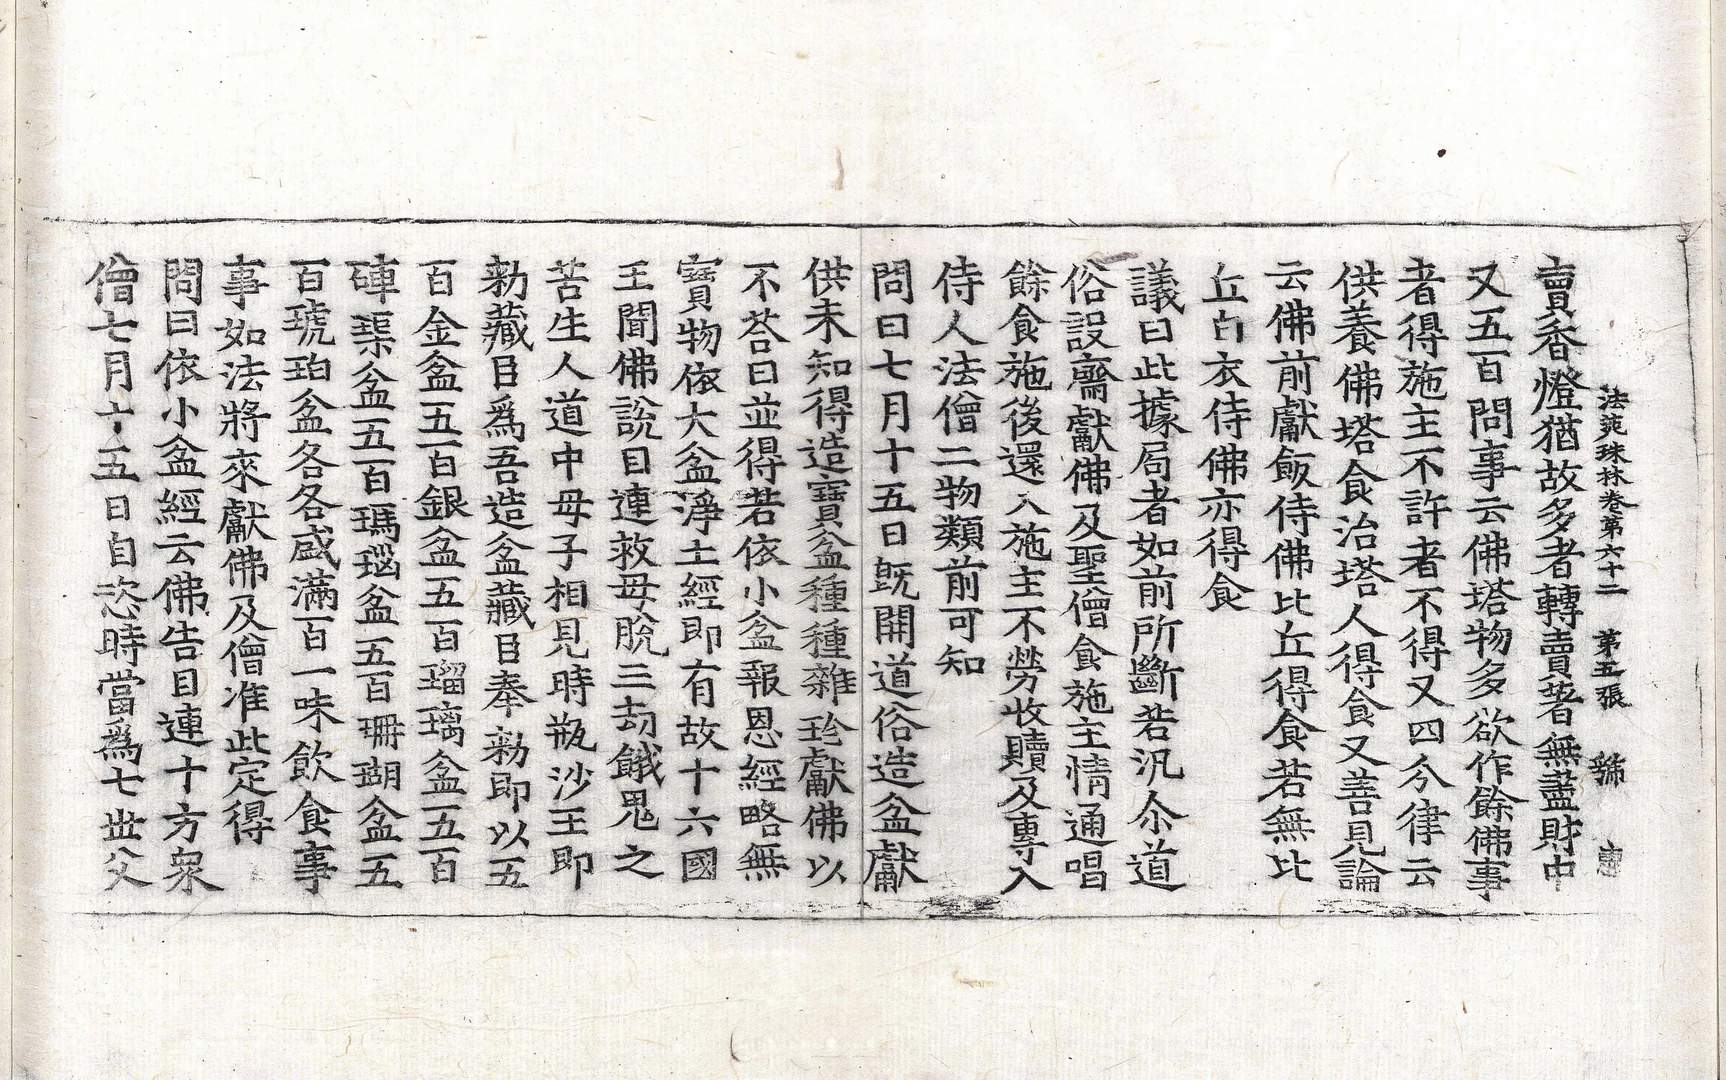 法苑珠林卷第六十二　第五張　𭺛
賣香燈猶故多者轉賣著無盡財中
又五百問事云佛塔物多欲作餘佛事
者得施主不許者不得又四分律云
供養佛塔食治塔人得食又善見論
云佛前獻飯侍佛比丘得食若無比
丘白衣侍佛亦得食
議曰此據局者如前所斷若汎尒道
俗設齋獻佛及聖僧食施主情通唱
餘食施後還入施主不勞收贖及專入
侍人法僧二物類前可知
問曰七月十五日旣開道俗造盆獻
供未知得造寶盆種種雜珎獻佛以
不荅曰並得若依小盆報恩經略無
寶物依大盆淨土經即有故十六國
王聞佛說目連救母脫三劫餓鬼之
苦生人道中母子相見時瓶沙王即
勑藏目爲吾造盆藏目奉勑即以五
百金盆五百銀盆五百瑠璃盆五百
硨磲盆五百瑪瑙盆五百珊瑚盆五
百琥珀盆各各盛滿百一味飲食事
事如法將來獻佛及僧准此定得
問曰依小盆經云佛告目連十方衆
僧七月十五日自恣時當爲七世父